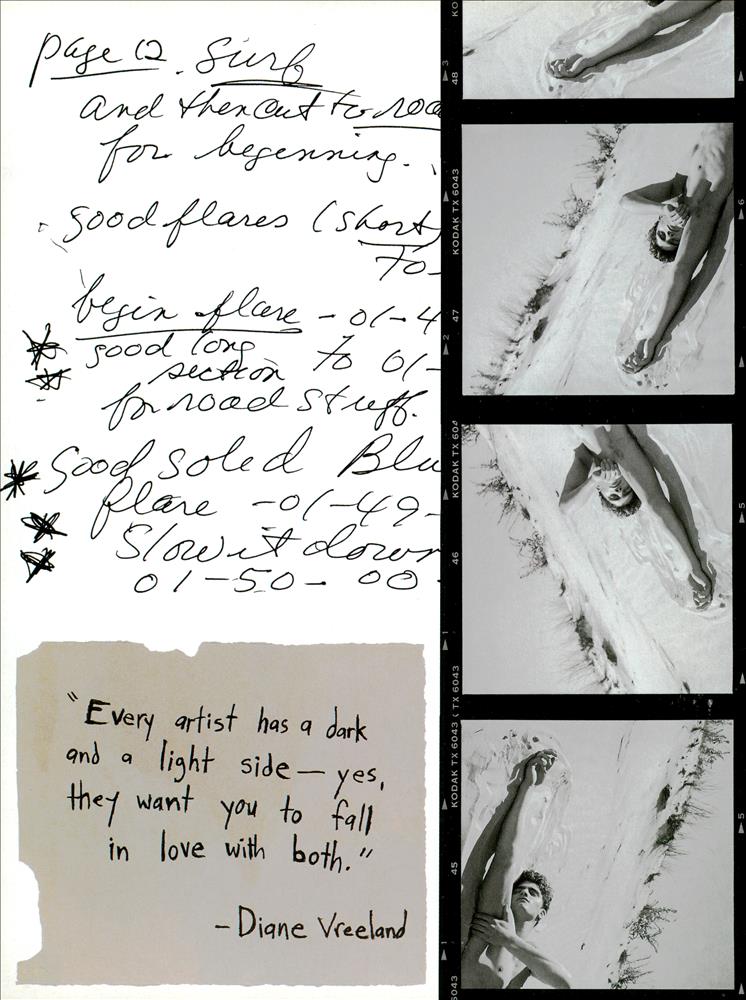 page 12. Surf
and then cut to roa
for beginning.
good flares (short)
To-
begin flare - 01-4
good long
section To 01-
for road stuff.
Good soled Blu
flare - 01-49-
Slow it down
01-50-00-
"Every artist has a dark
and a light side — yes,
they want you to fall
in love with both."
- Diane Vreeland
KO
48
3
KODAK TX 6043
47
6
2
KODAK TX 604
46
5
1
KODAK TX 6043
TX 6043
45
5
1
6043